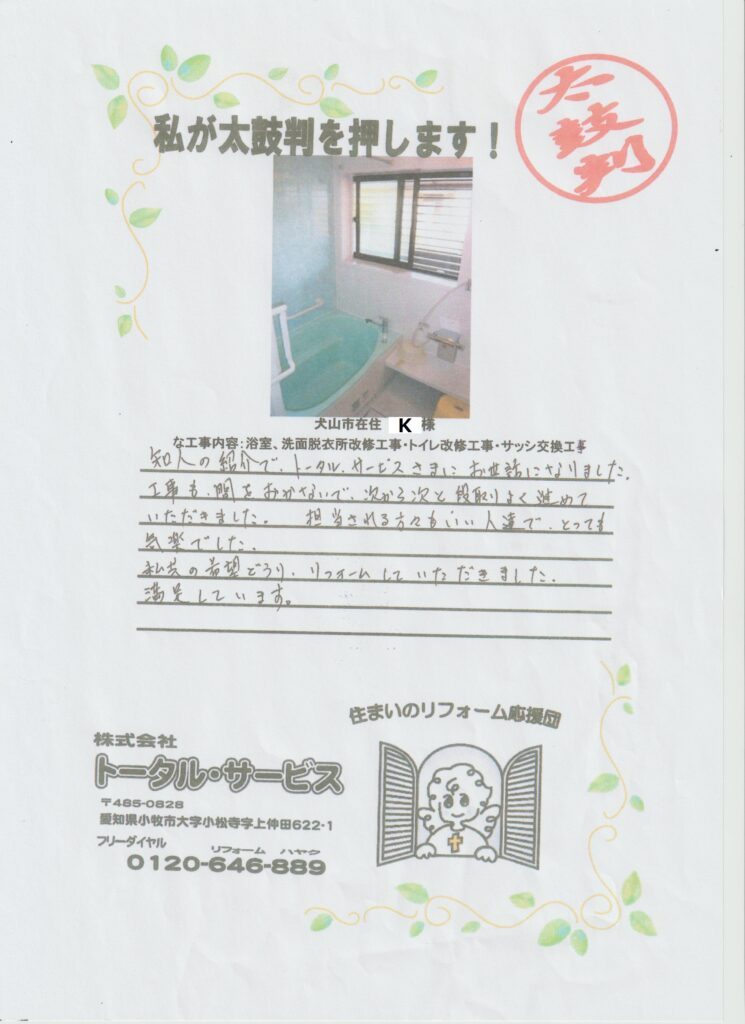 私が太鼓判を押します！
太鼓判
犬山市在住 K 様
な工事内容：浴室、洗面脱衣所改修工事・トイレ改修工事・サッシ交換工事
知人の紹介で、トータル.サービスさまにお世話になりました。
工事も、間をおかないで、次から次と段取りよく進めて
いただきました。 担当される方々もいい人達で、とっても
気楽でした。
私共の希望どうり、リフォームしていただきました。
満足しています。
住まいのリフォーム応援団
株式会社
トータル・サービス
〒485-0828
愛知県小牧市大字小松寺字上仲田622-1
フリーダイヤル リフォーム ハヤク
0120-646-889